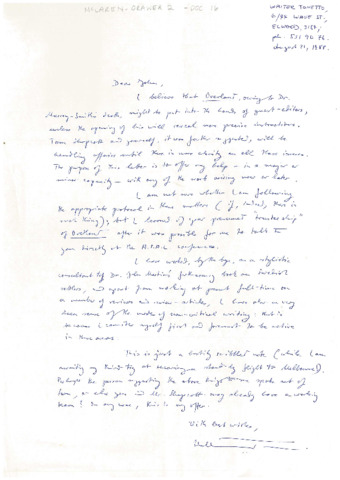 McLAREN - DRAWER 2 - DOC 16
WALTER TONETTO,
WAVE ST,
ELWOOD, 3184,
ph. 531 90 76.
August 11, 1988.
Dear John,
I believe that Overland, owing to Dr.
Murray-Smith's death, might be put into the hands of guest-editors,
unless the opening of his will reveal more precise instructions.
and yourself, it was further suggested, will be
handling affairs until there is more clarity on all these issues.
The purpose of this letter is to offer my help - in a major or
minor capacity - with any of the work arising now or later.
I am not sure whether I am following
the appropriate protocol in these matters (if, indeed, this is
such thing), but I learned of your
of Overland after it was possible for me to talk to
you directly at the conference.
I have worked, by the by, as a stylistic
consultant of Dr. John forthcoming book on Swedish
settlers, and apart from working at present full-time on
a number of reviews and review-articles, I have also a very
keen sense of the modes of non-critical writing: that is
because I consider myself first and foremost to be active
in those areas.
This is just a hastily scribbled note (while I am
awaiting my flight to Melbourne).
Perhaps the person suggesting the above things to me spoke out of
turn, or else you and Mr. may already have a working
team? In any case, this is my offer.
With best wishes,